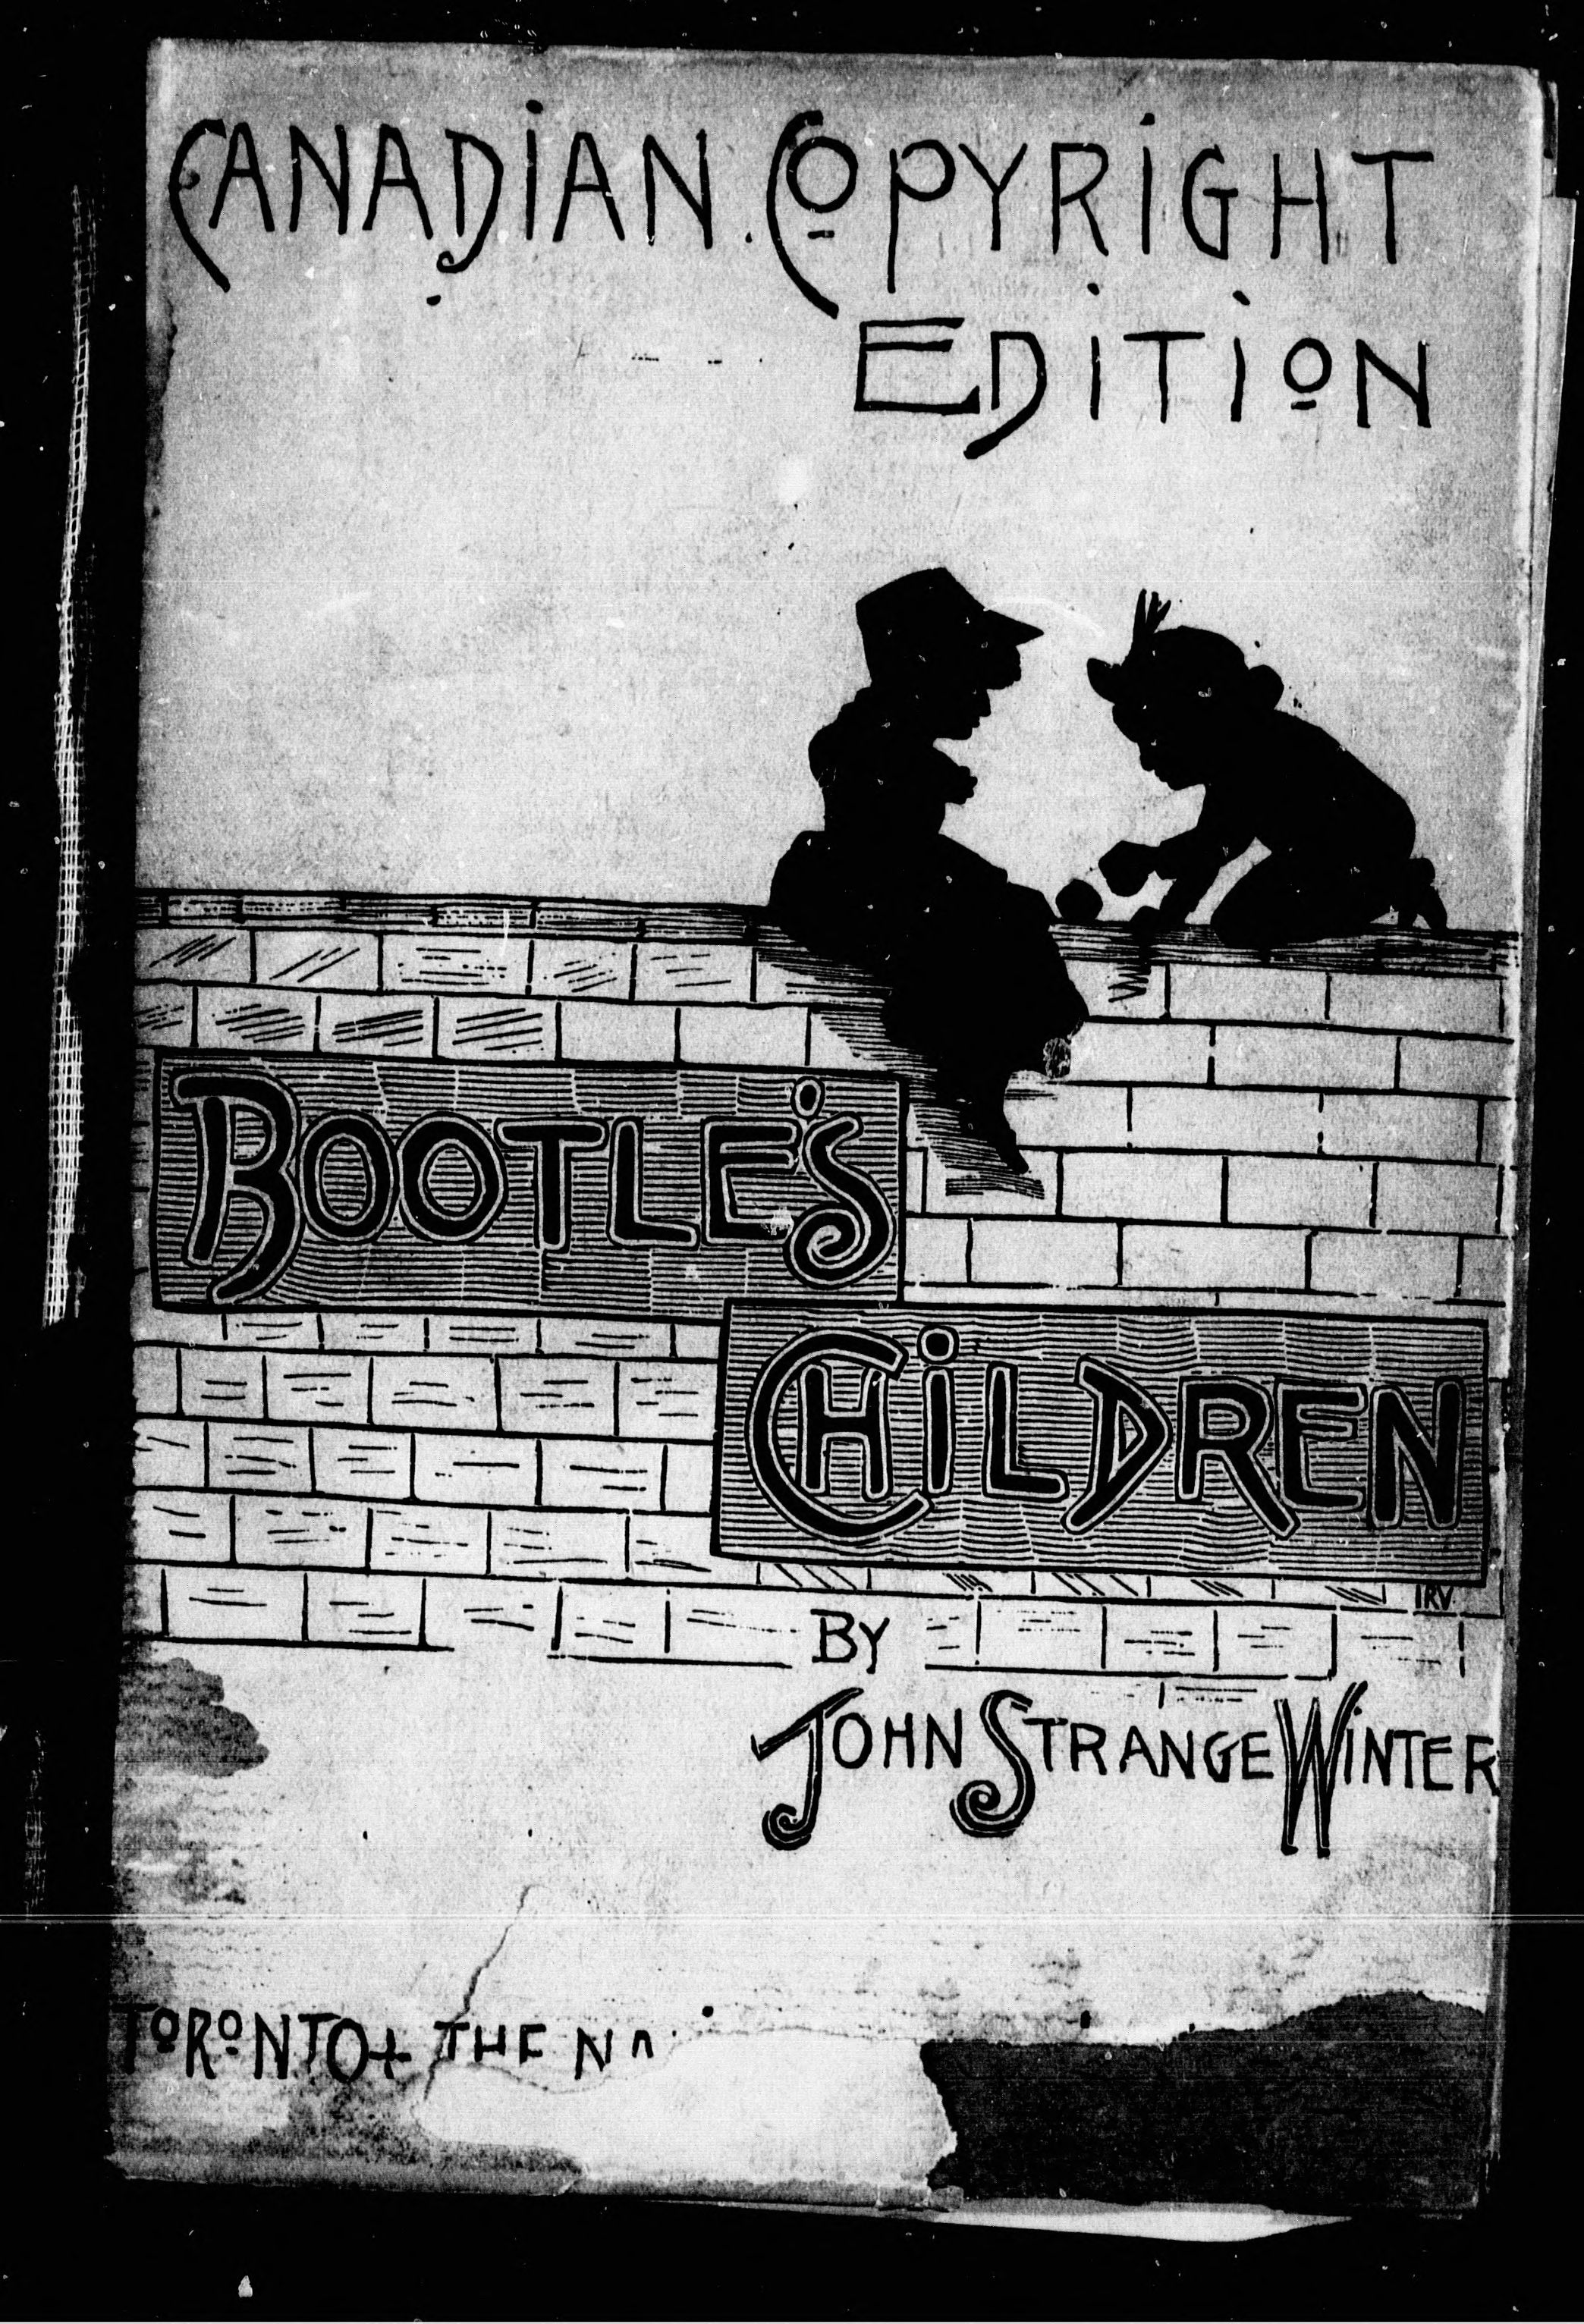 CANADIAN COPYRIGHT
EDITION
BOOTLE'S
CHILDREN
IRV.
BY
JOHN STRANGE WINTER
TORONTO THE